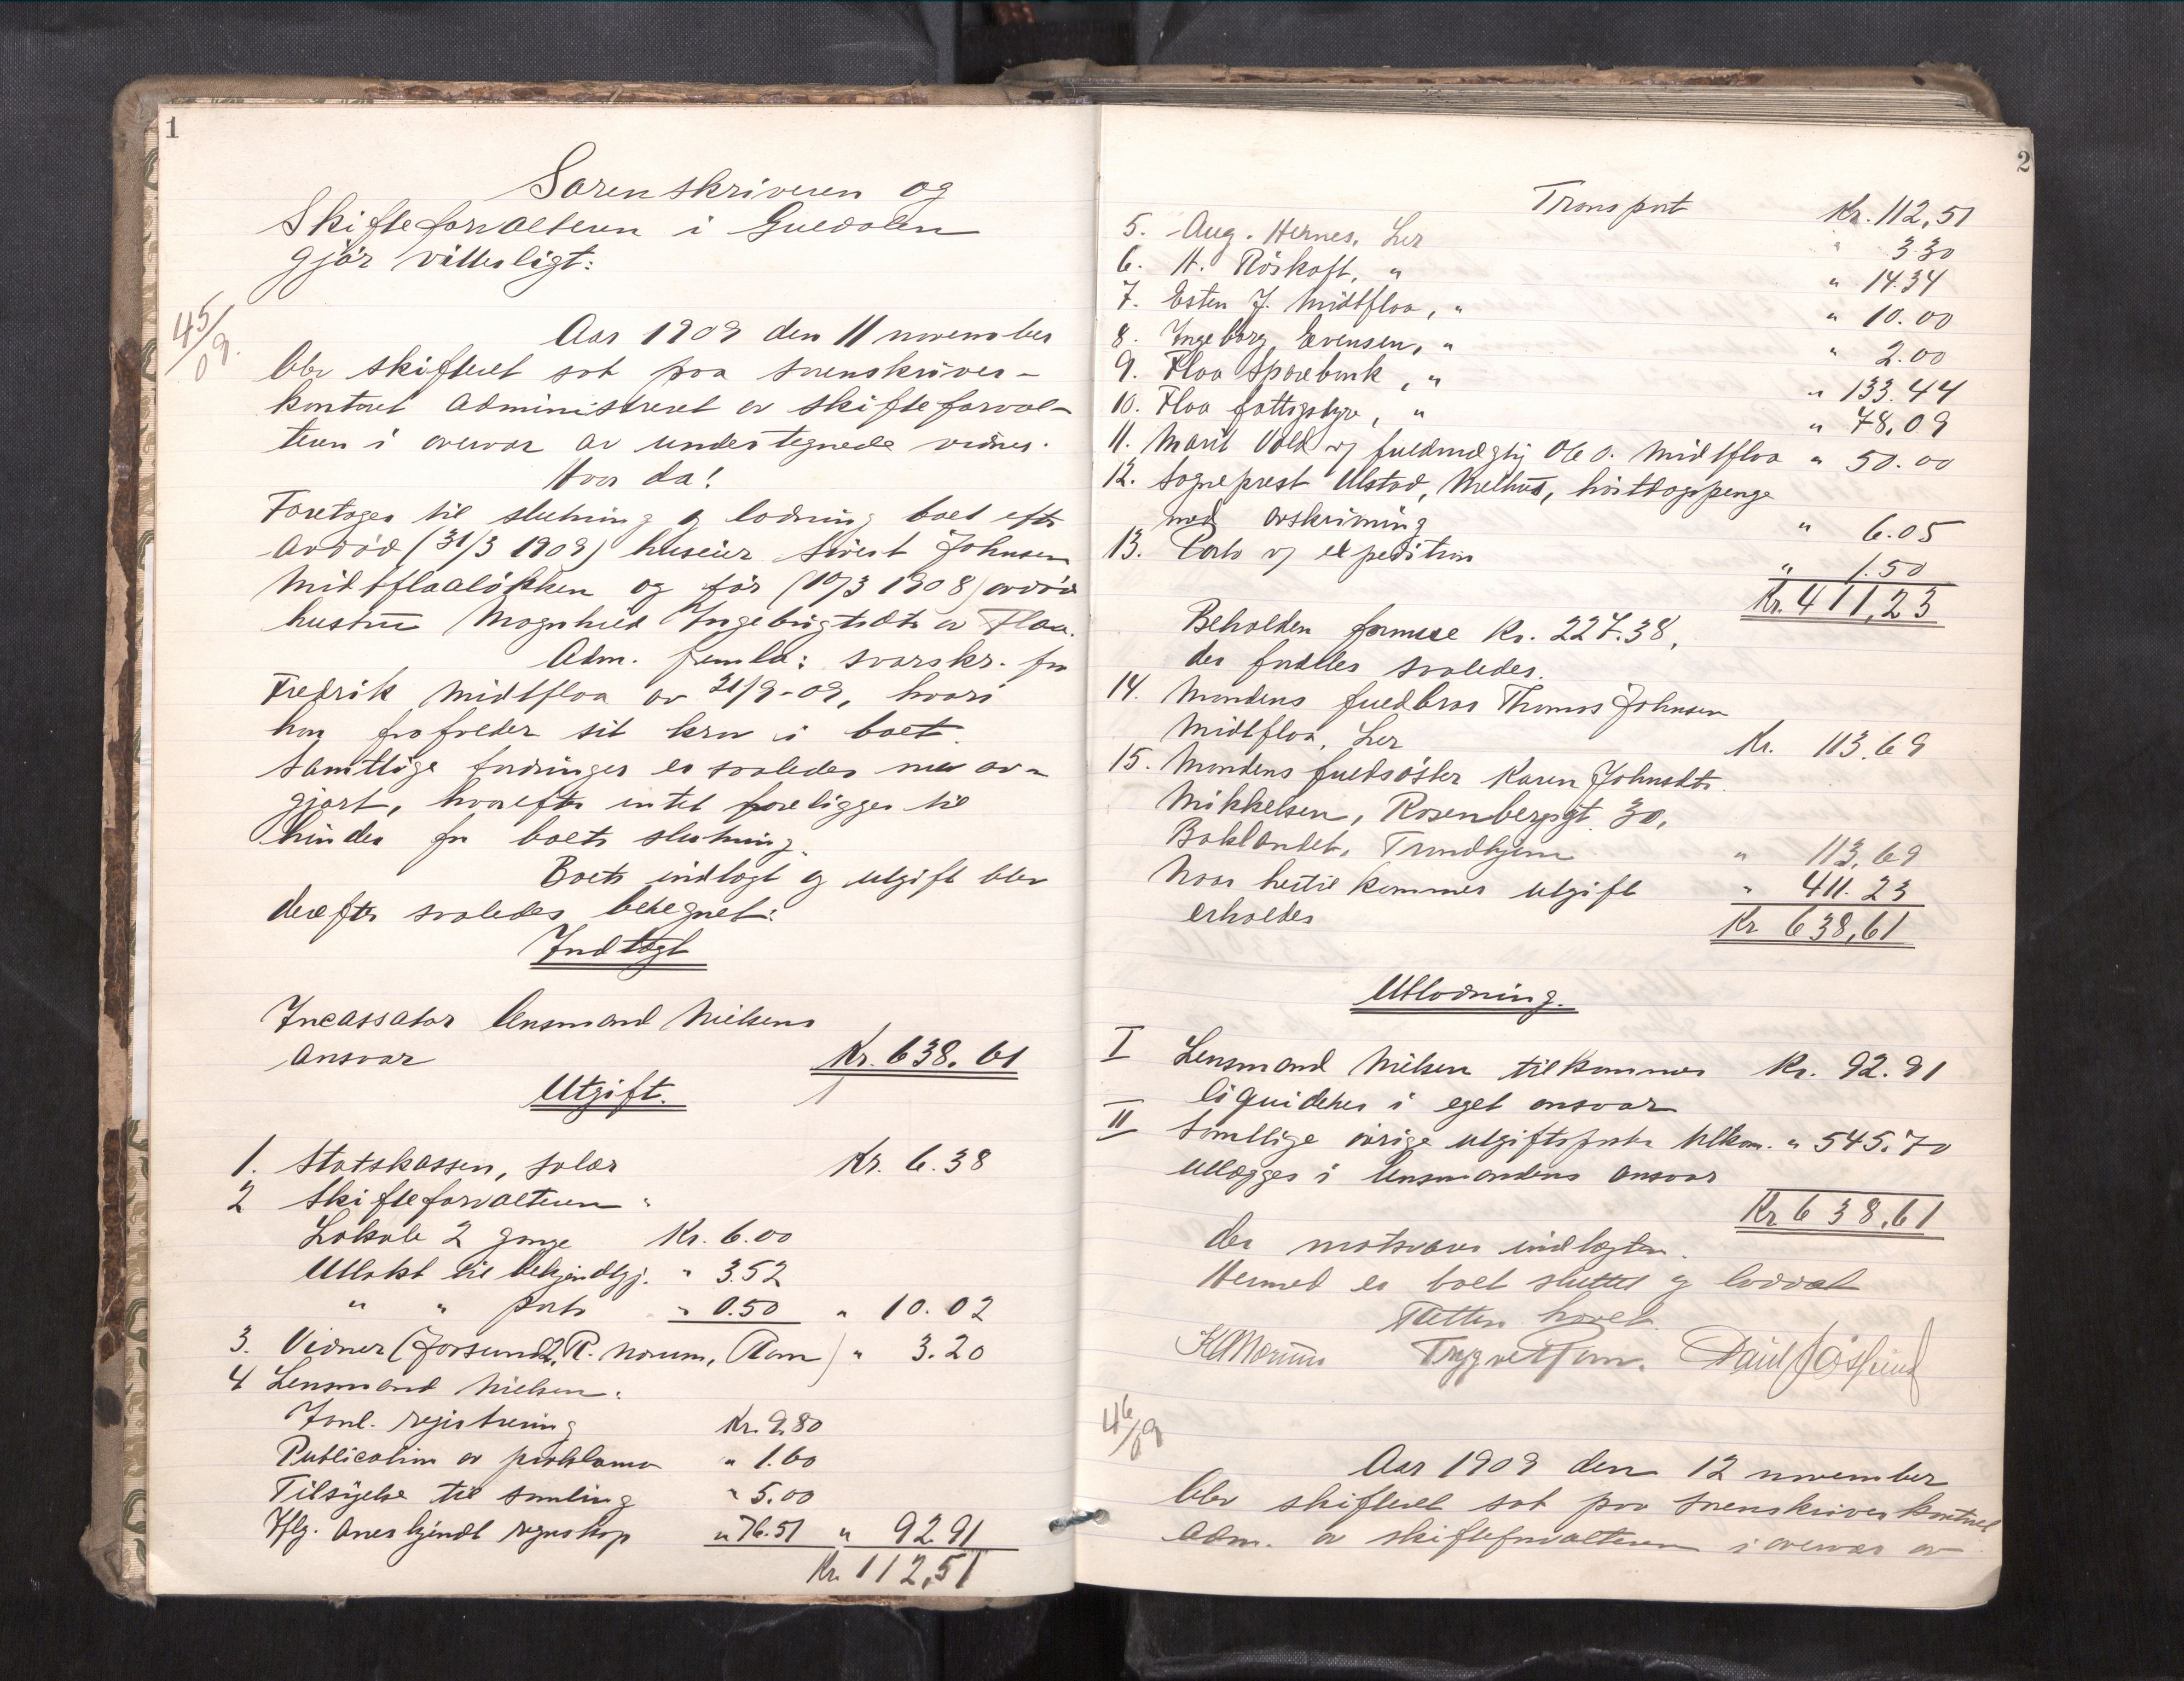 1
Sorenskriveren og
Skifteforvalteren i Guldalen
gjör vitterligt:
45/09.
Aar 1909 den 11 november
blev skifteret sat paa sorenskriver-
kontoret administreret av skifteforval-
teren i overvær av undertegnede vidner.
Hvor da!
Foretages til slutning og lodning boet efter
avdöd (31/3 1909) huseier Sivert Johnsen
Midtflaalökken og för (10/3 1908) avdöd
hustru Magnhild Ingebrigtsdtr av Flaa.
Adm. fremla: svarskr. fra
Fredrik Midtflaa av 21/9-09, hvori
han frafalder sit krav i boet.
Samtlige fordringer er saaledes nu av-
gjort, hvorefter intet foreligger til
hinder for boets slutning.
Boets indtægt og utgift blev
derefter saaledes beregnet:
Indtægt
Incassator lensmand Nielsens
ansvar Kr. 638.61
Utgift.
1. Statskassen, salær Kr. 6.38
2 Skifteforvalteren:
Lokale 2 gange Kr. 6.00
Utlakt til bekjendtgj. " 3.52
" " porto " 0.50 " 10.02
3. Vidner (Jossund 2, R. Norum, Ram) " 3.20
4 Lensmand Nielsen:
Forel. registrering Kr. 9.80
Publication av proklama " 1.60
Tilsigelse til samling " 5.00
Iflg. anerkjendt regnskap " 76.51 " 92.91
Kr. 112,51
2
Transport Kr. 112,51
5. Aug. Hernes, Ler " 3.30
6. H. Röskaft, " " 14.34
7. Esten J. Midtflaa, " " 10.00
8. Ingeborg Evensen, " " 2.00
9. Flaa Sparebank, " " 133.44
10. Flaa fattigstyre, " " 78,09
11. Marit Vold v/ fuldmægtig Ole O. Midtflaa " 50.00
12. Sogneprest Ulstad, Melhus, höitdagspenge
med avskrivning " 6.05
13. Porto v/ expedition " 1.50
Kr. 411,23
Beholden formue Kr. 227.38,
der fordeles saaledes.
14. Mandens fuldbror Thomas Johnsen
Midtflaa, Ler Kr. 113.69
15. Mandens fuldsöster Karen Johnsdtr.
Mikkelsen, Rosenbergsgt. 30,
Baklandet, Trondhjem " 113,69
Naar hertil kommer utgift " 411.23
erholdes Kr 638,61
Utlodning.
I Lensmand Nielsen tilkommer Kr. 92.91
liquideres i eget ansvar
II Samtlige övrige utgiftsposter tilkom. " 545.70
utlægges i lensmandens ansvar
Kr 638,61
der motsvarer indtægten.
Hermed er boet sluttet og loddet
Retten hævet.
K Norum Trygve Ram. Paul Jössund
46/09
Aar 1909 den 12 november
blev skifteret sat paa sorenskriverkontoret
adm. av skifteforvalteren i overvær av